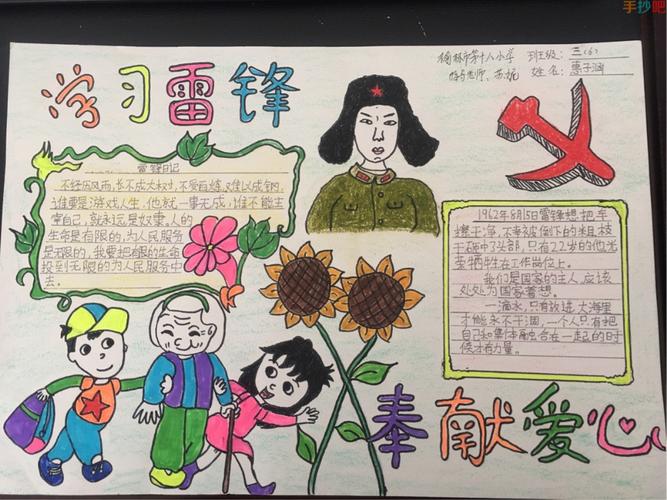 手抄吧
榆林市第十八小学 班级:三(6)
姓名:惠子涵
学习雷锋
雷锋日记
不经历风雨,长不成大树,不受百炼,难以成钢,
谁要是游戏人生,他就一事无成,谁不能主
宰自己,就永远是奴隶。人的
生命是有限的,为人民服务
是无限的,我要把有限的生命
投到无限的为人民服务中
去。
1962年8月15日雷锋想把车
擦干净,不幸被倒下的粗枝
干砸中了头部,只有22岁的他光
荣牺牲在工作岗位上。
我们是国家的主人,应该
处处为国家着想。
一滴水,只有放进大海里
才能永不干涸,一个人只有把
自己和集体融合在一起的时
候才有力量。
奉献爱心